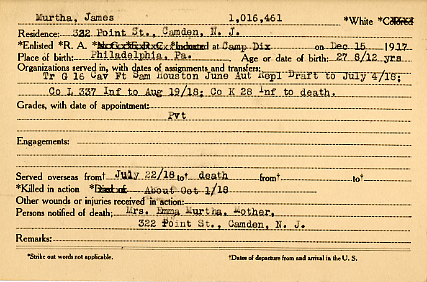 Murtha, James 1,016,461 *White *Colored
Residence: 322 Point St., Camden, N. J.
*Enlisted *R. A. at Camp Dix on Dec 15 1917
Place of birth: Philadelphia, Pa. Age or date of birth: 27 8/12 yrs
Organizations served in, with dates of assignments and transfers:
Tr G 16 Cav Ft Sam Houston June Aut Repl Draft to July 4/18;
Co L 337 Inf to Aug 19/18; Co K 28 Inf to death.
Grades, with date of appointment:
Pvt
Engagements:
Served overseas from† July 22/18 to† death from† to†
*Killed in action About Oct 1/18
Other wounds or injuries received in action:
Persons notified of death: Mrs. Emma Murtha, Mother,
322 Point St., Camden, N. J.
Remarks:
*Strike out words not applicable. †Dates of departure from and arrival in the U. S.